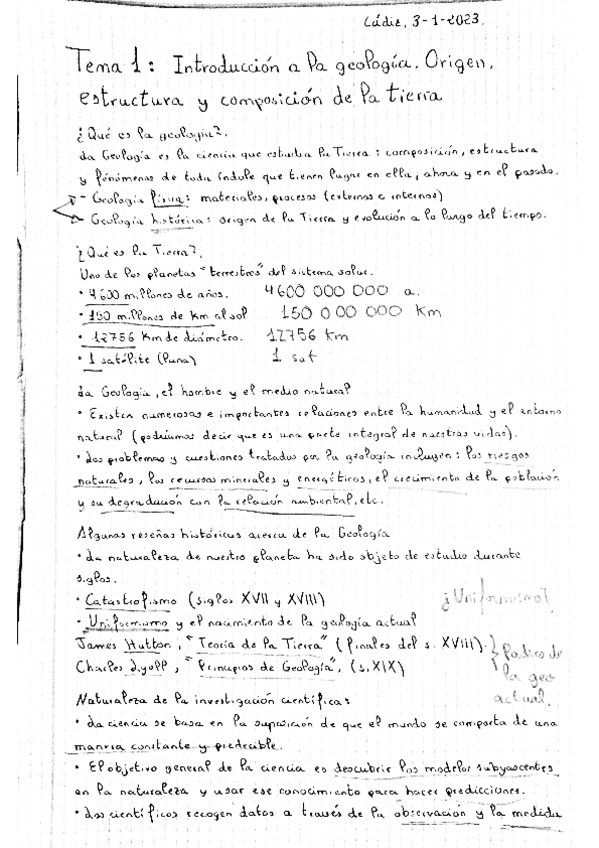 Cádiz, 3-1-2023.
Tema 1: Introducción a la geología. Origen,
estructura y composición de la tierra
¿Qué es la geología?.
La Geología es la ciencia que estudia la Tierra: composición, estructura
y fenómenos de toda índole que tienen lugar en ella, ahora y en el pasado.
- Geología física: materiales, procesos (externos e internos)
- Geología histórica: origen de la Tierra y evolución a lo largo del tiempo.
¿Qué es la Tierra?.
Uno de los planetas "terrestres" del sistema solar.
• 4600 millones de años. 4600 000 000 a.
• 150 millones de Km al sol 150 000 000 Km
• 12756 Km de diámetro. 12756 Km
• 1 satélite (luna) 1 sat
La Geología, el hombre y el medio natural
• Existen numerosas e importantes relaciones entre la humanidad y el entorno
natural (podríamos decir que es una parte integral de nuestras vidas).
• Los problemas y cuestiones tratados por la geología incluyen: los riesgos
naturales, los recursos minerales y energéticos, el crecimiento de la población
y su degradación con la relación ambiental, etc.
Algunas reseñas históricas acerca de la Geología
• La naturaleza de nuestro planeta ha sido objeto de estudio durante
siglos.
• Catastrofismo (siglos XVII y XVIII) ¿Uniformismo?
• Uniformismo y el nacimiento de la geología actual
James Hutton, "Teoría de la Tierra" (finales del s. XVIII). Padres de
Charles Lyell, "Principios de Geología", (s. XIX) la geo
actual.
Naturaleza de la investigación científica:
• La ciencia se basa en la suposición de que el mundo se comporta de una
manera constante y predecible.
• El objetivo general de la ciencia es descubrir los modelos subyascentes
en la naturaleza y usar ese conocimiento para hacer predicciones.
• Los científicos recogen datos a través de la observación y la medida